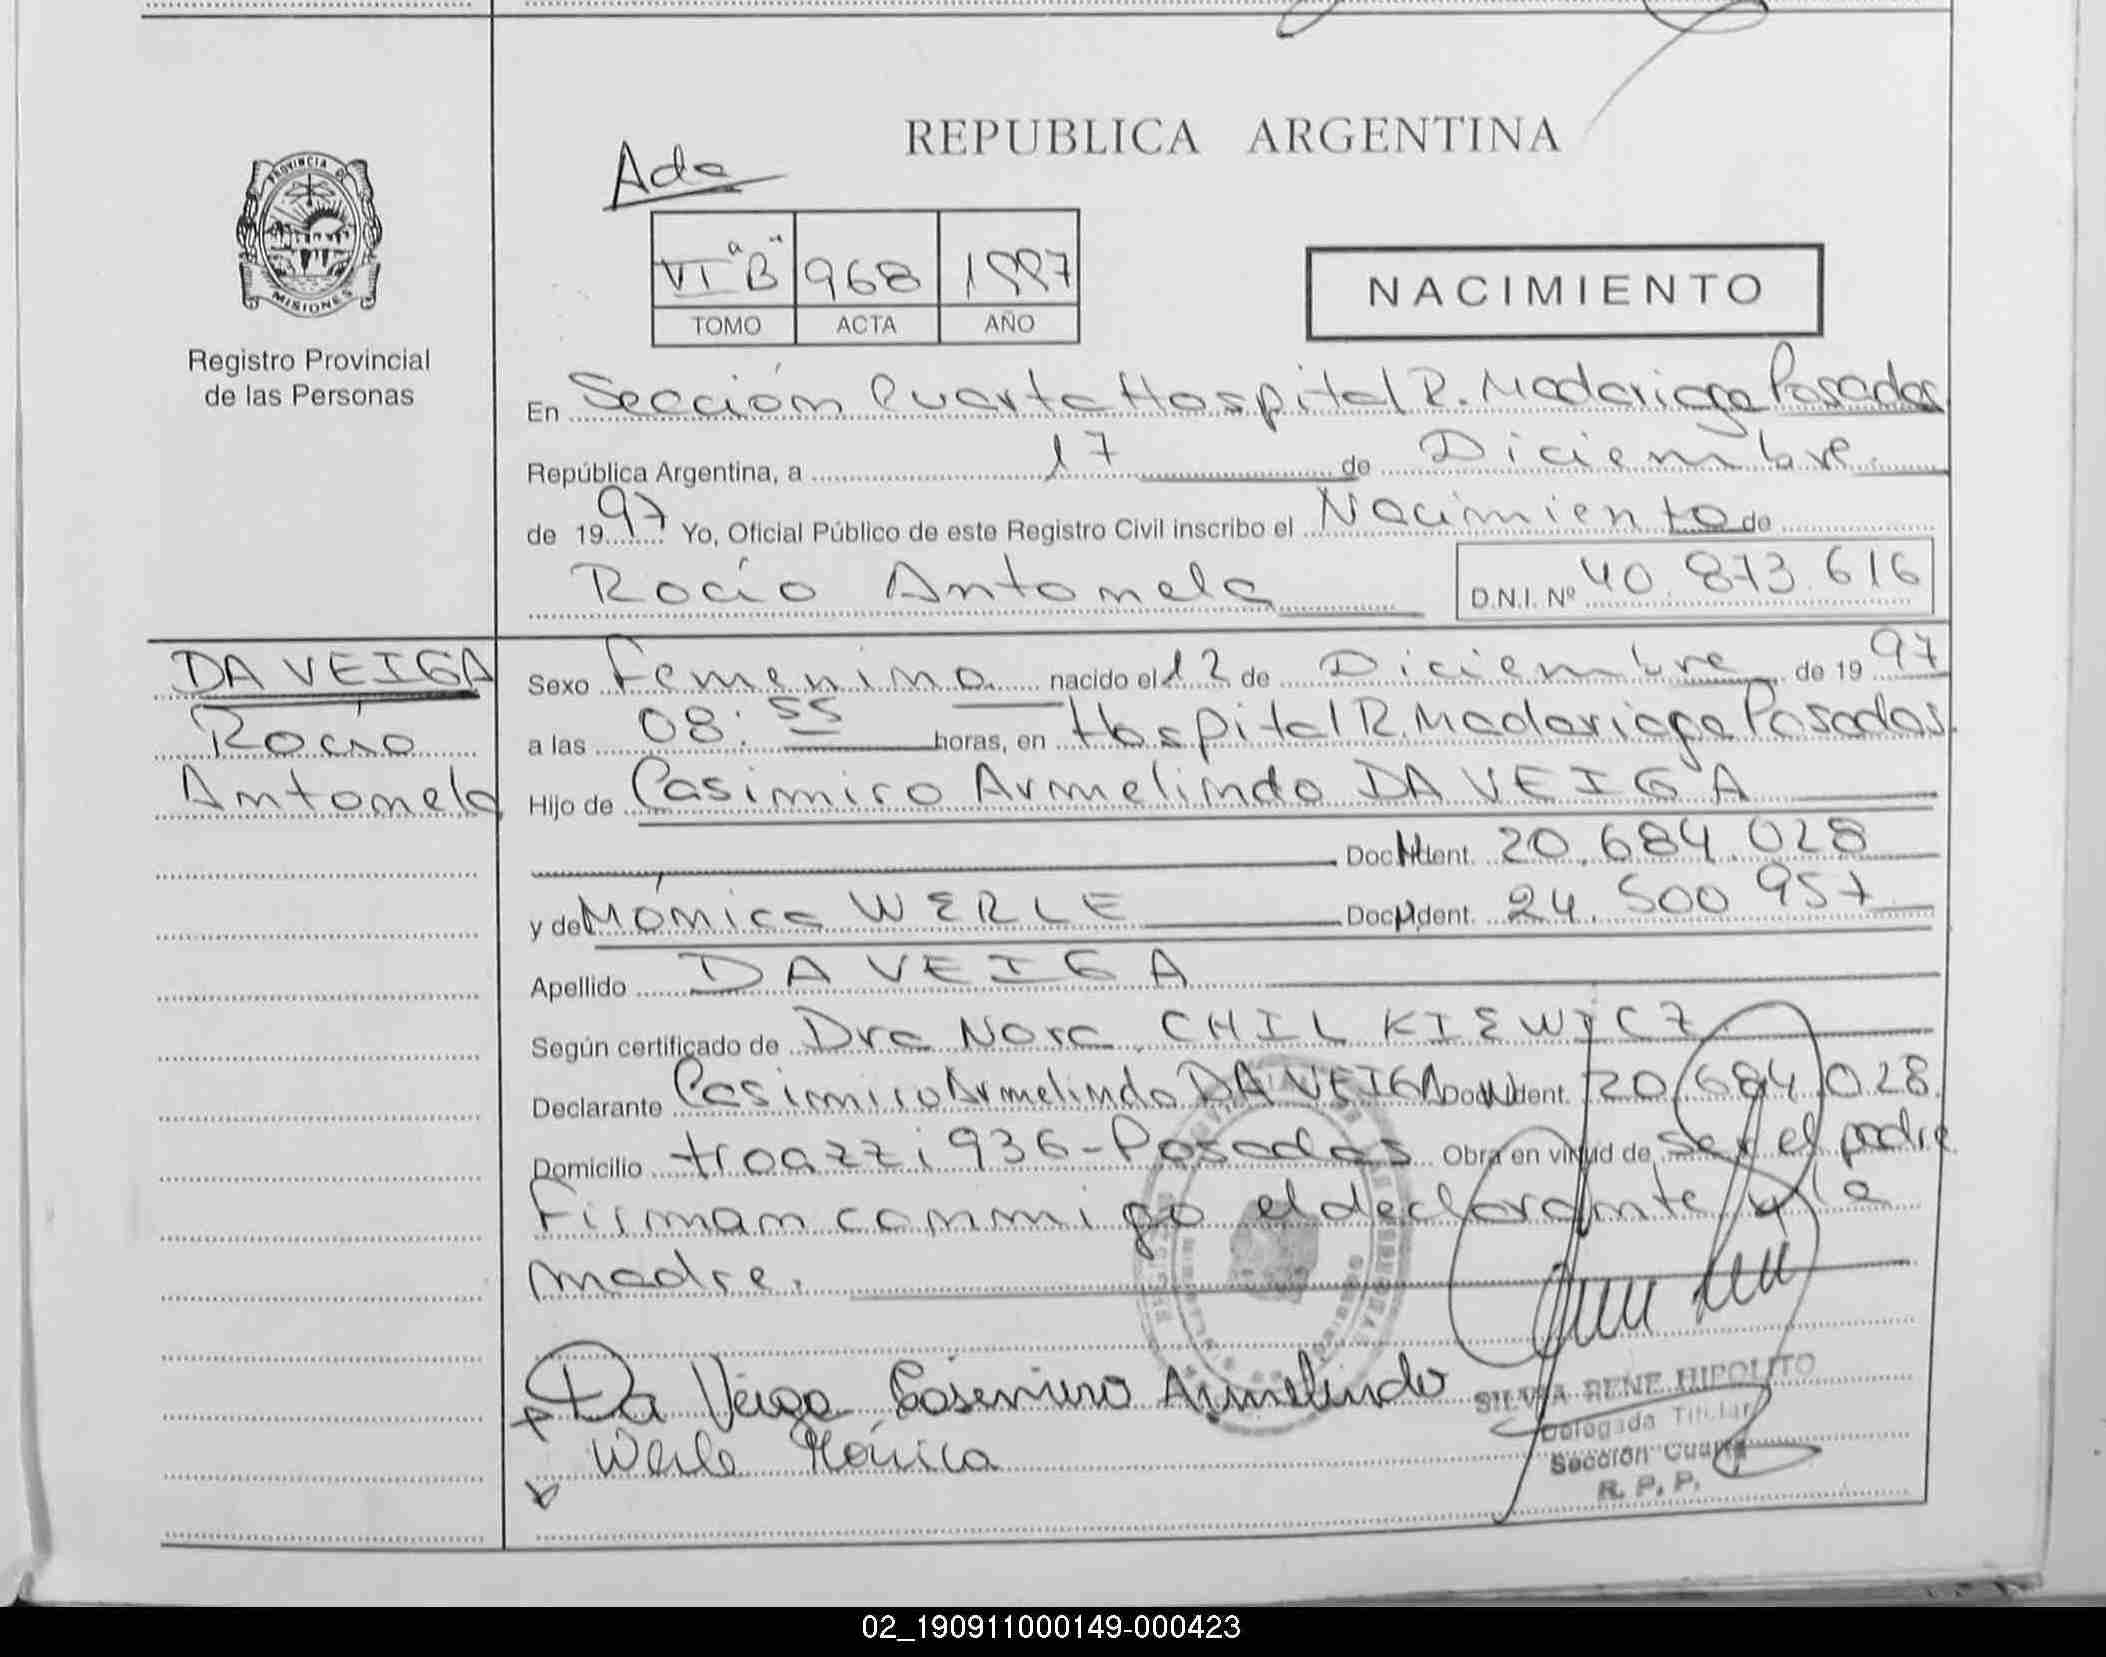 REPUBLICA ARGENTINA
Ada
PROVINCIA DE
MISIONES
VI "B" 968 1997
TOMO ACTA AÑO
NACIMIENTO
Registro Provincial
de las Personas
En Sección Cuarta Hospital R. Madariaga Posadas
República Argentina, a 17 de Diciembre
de 1997 Yo, Oficial Público de este Registro Civil inscribo el Nacimiento de
Rocío Antonela D.N.I. Nº 40.873.616
DA VEIGA
Rocío
Antonela
Sexo Femenino nacido el 12 de Diciembre de 1997
a las 08:55 horas, en Hospital R. Madariaga Posadas.
Hijo de Casimiro Armelindo DA VEIGA
Doc. Ident. 20.684.028
y de Mónica WERLE Doc. Ident. 24.500.957
Apellido DA VEIGA
Según certificado de Dra Nora CHILKIEWICZ
Declarante Casimiro Armelindo DA VEIGA Doc. Ident. 20.684.028
Domicilio troazzi 936-Posadas Obra en virtud de ser el padre
Firman conmigo el declarante y la
madre.
Da Veiga Casemiro Armelindo
Werle Mónica
SILVIA RENE HIPOLITO
Delegada Titular
Sección Cuarta
R. P. P.
02_190911000149-000423